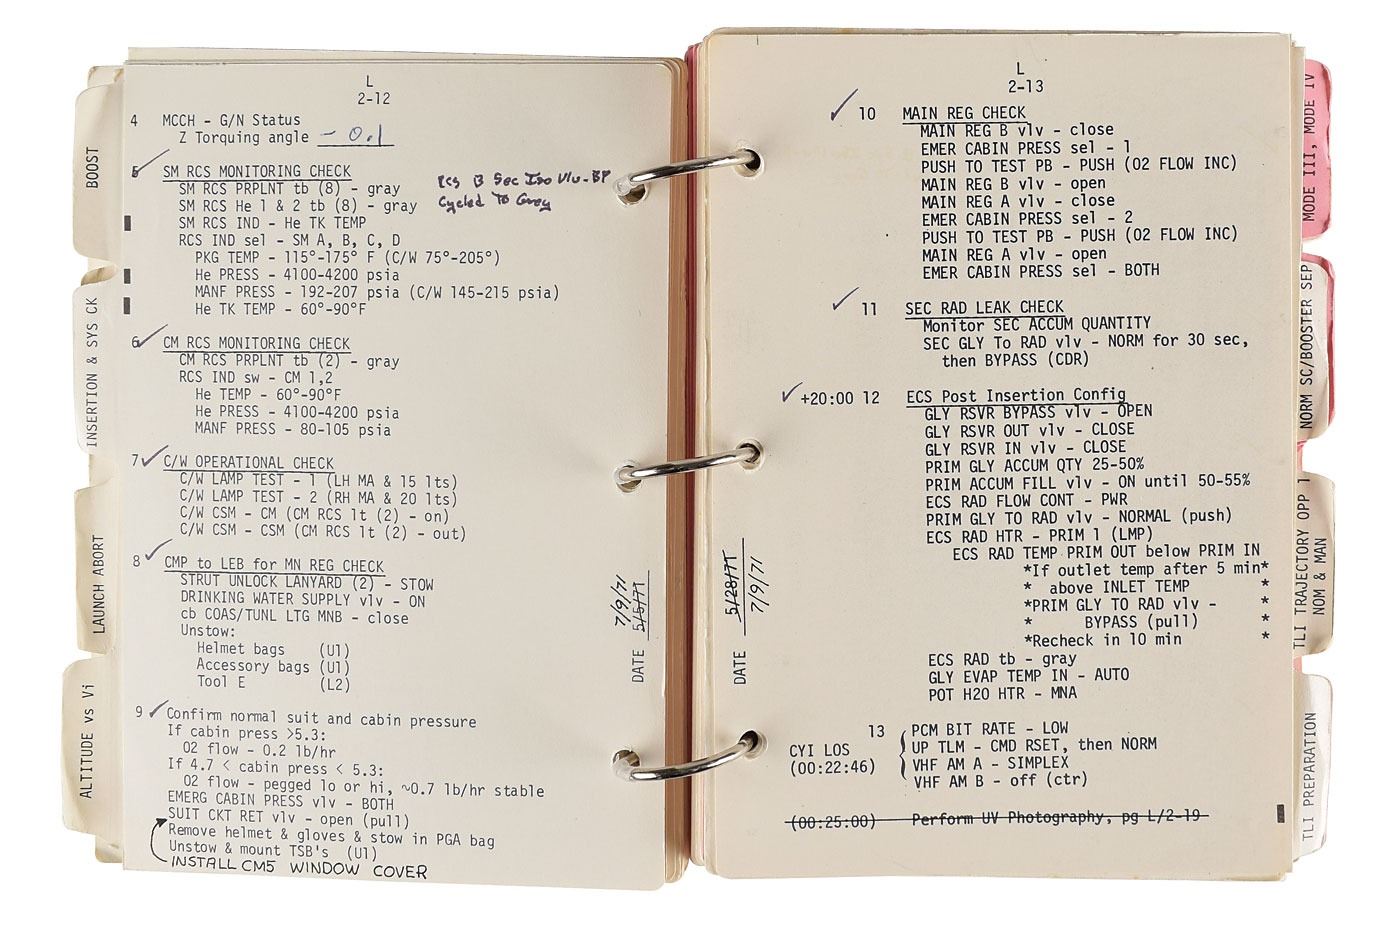 BOOST
INSERTION & SYS CK
LAUNCH ABORT
ALTITUDE vs Vi
L
2-12
4 MCCH - G/N Status
Z Torquing angle - 0.1
5 SM RCS MONITORING CHECK
SM RCS PRPLNT tb (8) - gray
SM RCS He 1 & 2 tb (8) - gray
SM RCS IND - He TK TEMP
RCS IND sel - SM A, B, C, D
PKG TEMP - 115°-175° F (C/W 75°-205°)
He PRESS - 4100-4200 psia
MANF PRESS - 192-207 psia (C/W 145-215 psia)
He TK TEMP - 60°-90°F
Rcs B Sec Iso Vlv-BP
Cycled To Grey
6 CM RCS MONITORING CHECK
CM RCS PRPLNT tb (2) - gray
RCS IND sw - CM 1,2
He TEMP - 60°-90°F
He PRESS - 4100-4200 psia
MANF PRESS - 80-105 psia
7 C/W OPERATIONAL CHECK
C/W LAMP TEST - 1 (LH MA & 15 lts)
C/W LAMP TEST - 2 (RH MA & 20 lts)
C/W CSM - CM (CM RCS lt (2) - on)
C/W CSM - CSM (CM RCS lt (2) - out)
8 CMP to LEB for MN REG CHECK
STRUT UNLOCK LANYARD (2) - STOW
DRINKING WATER SUPPLY vlv - ON
cb COAS/TUNL LTG MNB - close
Unstow:
Helmet bags (U1)
Accessory bags (U1)
Tool E (L2)
9 Confirm normal suit and cabin pressure
If cabin press >5.3:
O2 flow - 0.2 lb/hr
If 4.7 < cabin press < 5.3:
O2 flow - pegged lo or hi, ~0.7 lb/hr stable
EMERG CABIN PRESS vlv - BOTH
SUIT CKT RET vlv - open (pull)
Remove helmet & gloves & stow in PGA bag
Unstow & mount TSB's (U1)
INSTALL CM5 WINDOW COVER
7/9/71
DATE 5/5/71
L
2-13
10 MAIN REG CHECK
MAIN REG B vlv - close
EMER CABIN PRESS sel - 1
PUSH TO TEST PB - PUSH (O2 FLOW INC)
MAIN REG B vlv - open
MAIN REG A vlv - close
EMER CABIN PRESS sel - 2
PUSH TO TEST PB - PUSH (O2 FLOW INC)
MAIN REG A vlv - open
EMER CABIN PRESS sel - BOTH
11 SEC RAD LEAK CHECK
Monitor SEC ACCUM QUANTITY
SEC GLY To RAD vlv - NORM for 30 sec,
then BYPASS (CDR)
+20:00 12 ECS Post Insertion Config
GLY RSVR BYPASS vlv - OPEN
GLY RSVR OUT vlv - CLOSE
GLY RSVR IN vlv - CLOSE
PRIM GLY ACCUM QTY 25-50%
PRIM ACCUM FILL vlv - ON until 50-55%
ECS RAD FLOW CONT - PWR
PRIM GLY TO RAD vlv - NORMAL (push)
ECS RAD HTR - PRIM 1 (LMP)
ECS RAD TEMP PRIM OUT below PRIM IN
*If outlet temp after 5 min*
* above INLET TEMP *
*PRIM GLY TO RAD vlv - *
* BYPASS (pull)
*Recheck in 10 min *
ECS RAD tb - gray
GLY EVAP TEMP IN - AUTO
POT H2O HTR - MNA
13 PCM BIT RATE - LOW
CYI LOS UP TLM - CMD RSET, then NORM
(00:22:46) VHF AM A - SIMPLEX
VHF AM B - off (ctr)
(00:25:00) Perform UV Photography, pg L/2-19
5/28/71
DATE 7/9/71
MODE III, MODE IV
NORM SC/BOOSTER SEP
TLI TRAJECTORY OPP 1
NOM & MAN
TLI PREPARATION